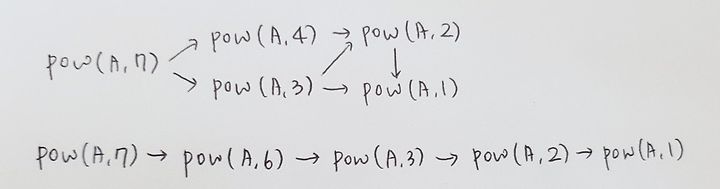 pow(A,4) → pow(A,2)
pow(A,7) ↗ ↘ ↗ ↓
pow(A,3) → pow(A,1)
pow(A,7) → pow(A,6) → pow(A,3) → pow(A,2) → pow(A,1)